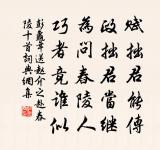 賦拙君能傳
政拙君當繼
為問春陵人
巧者竟誰似
彭龜年送趙介之赴春
陵十首詞典網集